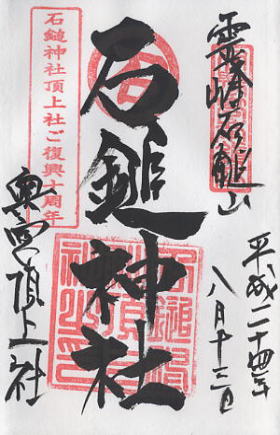 霊峰石鎚山
平成二十四年
八月十三日
石鎚神社
石鎚神社頂上社ご復興十周年
奥宮頂上社